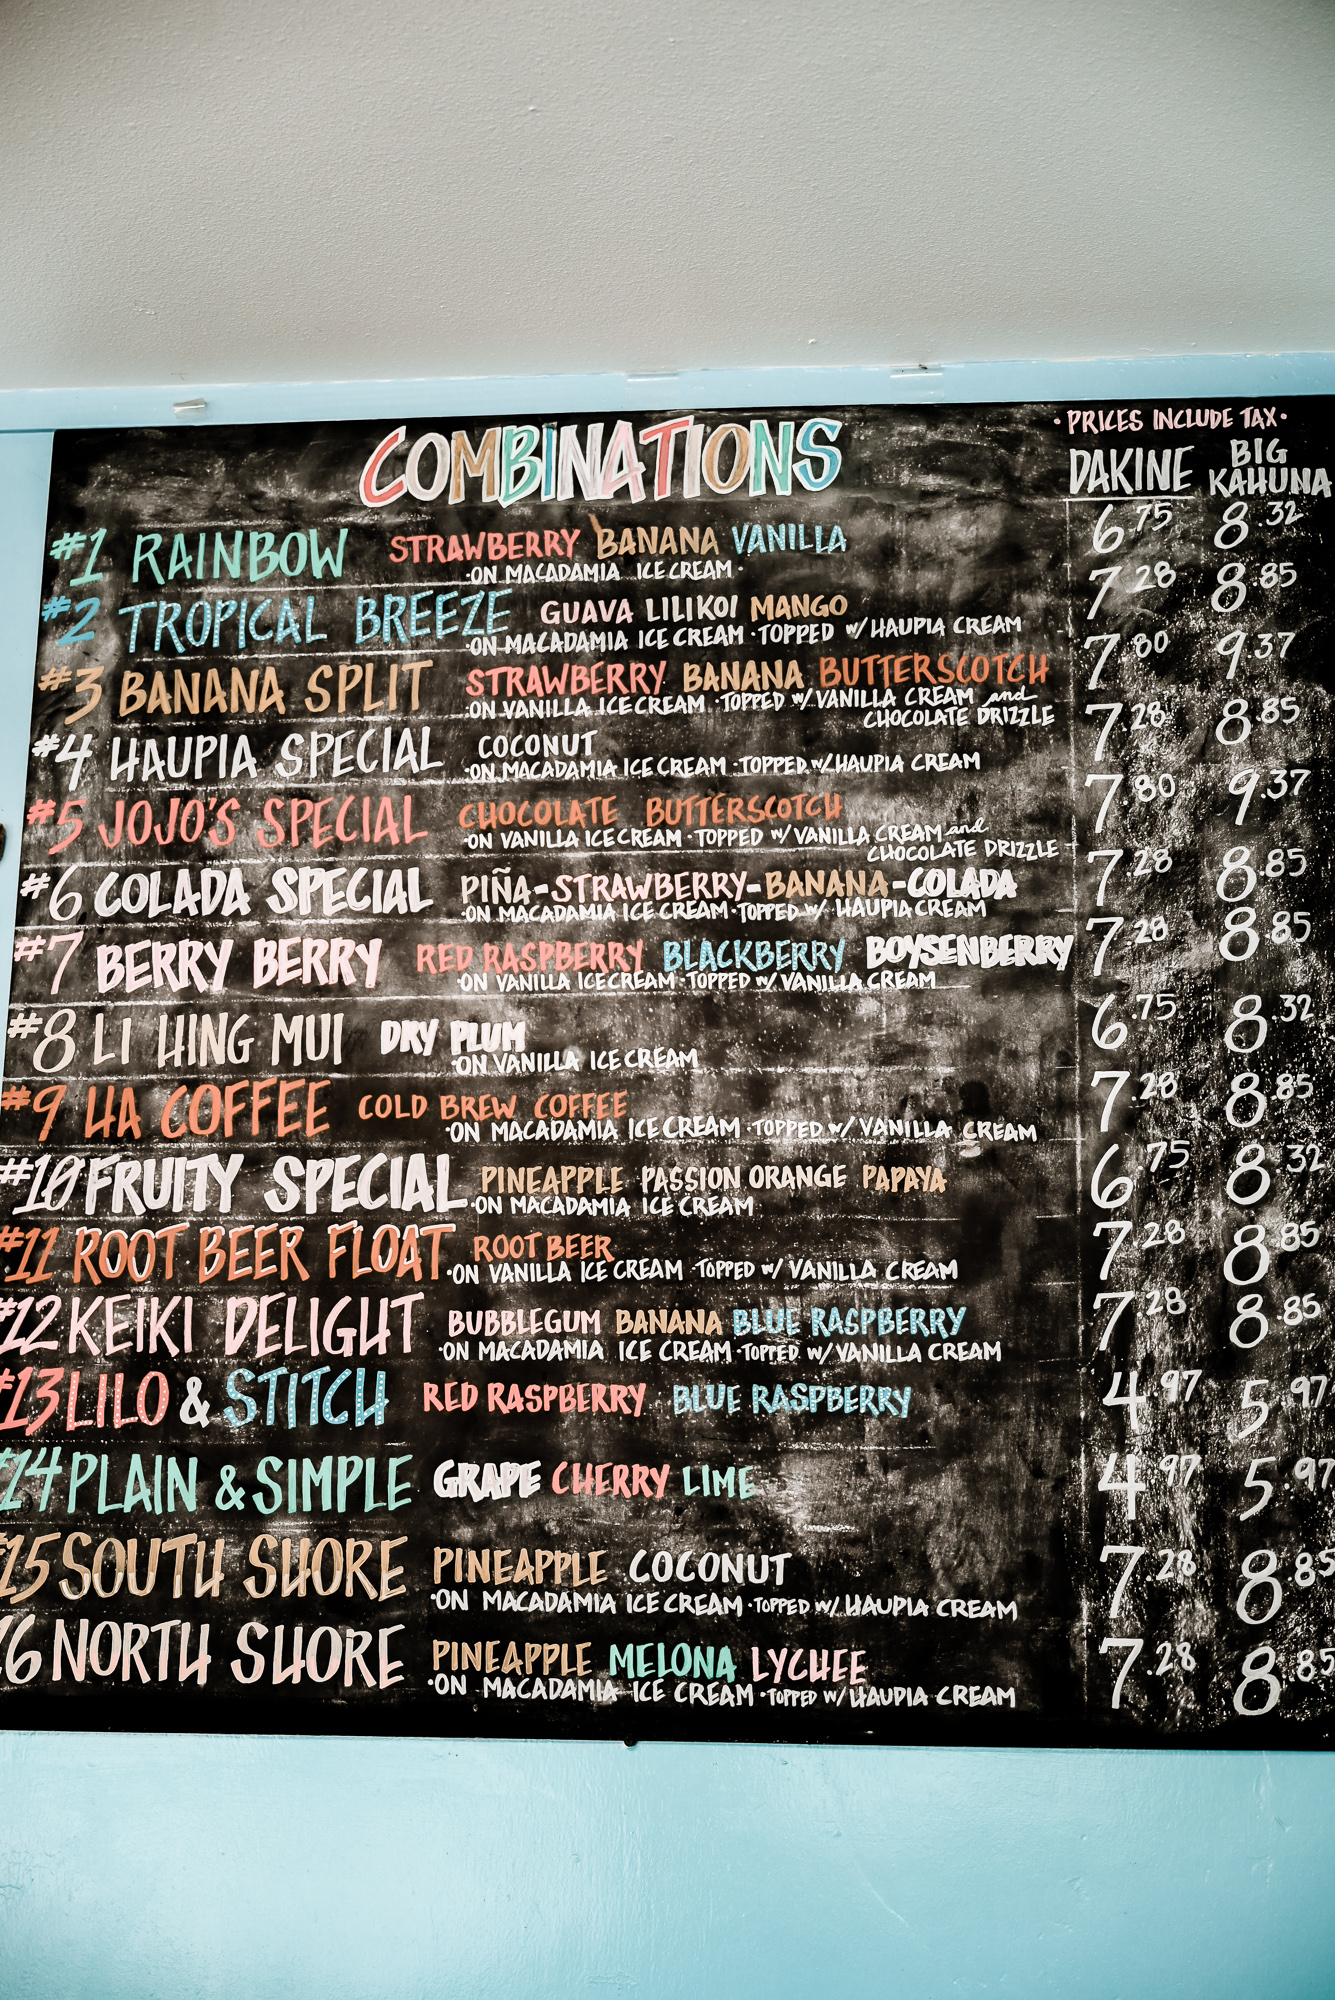 COMBINATIONS
·PRICES INCLUDE TAX·
DAKINE BIG KAHUNA
#1 RAINBOW STRAWBERRY BANANA VANILLA 6.75 8.32
·ON MACADAMIA ICE CREAM·
#2 TROPICAL BREEZE GUAVA LILIKOI MANGO 7.28 8.85
·ON MACADAMIA ICE CREAM ·TOPPED W/ HAUPIA CREAM
#3 BANANA SPLIT STRAWBERRY BANANA BUTTERSCOTCH 7.80 9.37
·ON VANILLA ICE CREAM ·TOPPED W/ VANILLA CREAM and
CHOCOLATE DRIZZLE
#4 HAUPIA SPECIAL COCONUT 7.28 8.85
·ON MACADAMIA ICE CREAM ·TOPPED W/ HAUPIA CREAM
#5 JOJO'S SPECIAL CHOCOLATE BUTTERSCOTCH 7.80 9.37
·ON VANILLA ICE CREAM ·TOPPED W/ VANILLA CREAM and
CHOCOLATE DRIZZLE
#6 COLADA SPECIAL PIÑA-STRAWBERRY-BANANA-COLADA 7.28 8.85
·ON MACADAMIA ICE CREAM ·TOPPED W/ HAUPIA CREAM
#7 BERRY BERRY RED RASPBERRY BLACKBERRY BOYSENBERRY 7.28 8.85
·ON VANILLA ICE CREAM ·TOPPED W/ VANILLA CREAM
#8 LI HING MUI DRY PLUM 6.75 8.32
·ON VANILLA ICE CREAM
#9 HA COFFEE COLD BREW COFFEE 7.28 8.85
·ON MACADAMIA ICE CREAM ·TOPPED W/ VANILLA CREAM
#10 FRUITY SPECIAL PINEAPPLE PASSION ORANGE PAPAYA 6.75 8.32
·ON MACADAMIA ICE CREAM
#11 ROOT BEER FLOAT ROOT BEER 7.28 8.85
·ON VANILLA ICE CREAM ·TOPPED W/ VANILLA CREAM
#12 KEIKI DELIGHT BUBBLEGUM BANANA BLUE RASPBERRY 7.28 8.85
·ON MACADAMIA ICE CREAM ·TOPPED W/ VANILLA CREAM
#13 LILO & STITCH RED RASPBERRY BLUE RASPBERRY 4.97 5.97
#14 PLAIN & SIMPLE GRAPE CHERRY LIME 4.97 5.97
15 SOUTH SHORE PINEAPPLE COCONUT 7.28 8.85
·ON MACADAMIA ICE CREAM ·TOPPED W/ HAUPIA CREAM
16 NORTH SHORE PINEAPPLE MELONA LYCHEE 7.28 8.85
·ON MACADAMIA ICE CREAM ·TOPPED W/ HAUPIA CREAM